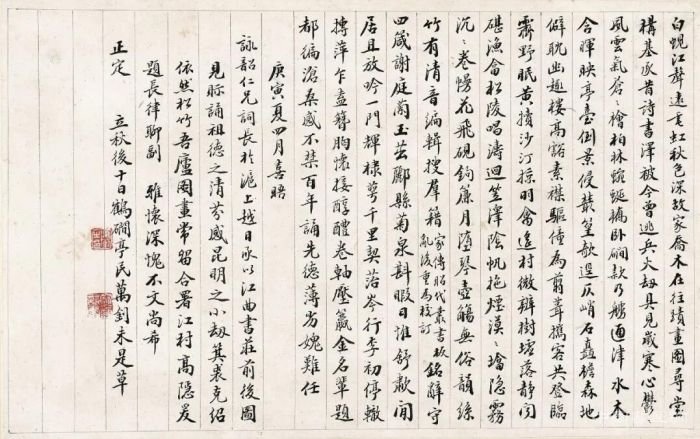 白蜆江聲遠垂虹秋色深故家喬木在往蹟畫圖尋堂
構基承昔詩書澤被今曾逃兵火劫具見歲寒心鬱〻
風雲氣蒼〻檜柏林蜿蜒橋臥磵款乃艣通津水木
合暉映亭臺倒景侵叢篁欹逕仄峭石矗檐森地
僻耽幽趣樓高豁素襟驅僮為翦葺攜客共登臨
霽野眠黃犢沙汀採時禽遙村微辨樹墟落静聞
碪漁舍松陵唱濤迴笠澤陰帆拖煙漠〻墻隱霧
沉〻卷幔花飛硯鉤簾月墮琴壺觴無俗韻絲
竹有清音徧輯搜羣籍家傳昭代叢書板亂後重為校訂銘辭守
四箴謝庭蘭玉茁酈縣菊泉斟暇日惟舒歗閒
居且放吟一門輝棣萼千里契苔岑行李初停轍
摶萍乍盍簪胸懷接醇醴卷軸壓籝金名輩題
都徧滄桑感不禁百年誦先德薄劣媿難任
庚寅夏四月喜晤
詠韶仁兄詞長於滬上越日承以江曲書莊前後圖
見眎誦祖德之清芬感昆明之小劫箕裘克紹
依然松竹吾廬圖畫常留合署江村高隱爰
題長律聊副　雅懷深愧不文尚希
正定　立秋後十日鶴磵亭民萬釗未是草